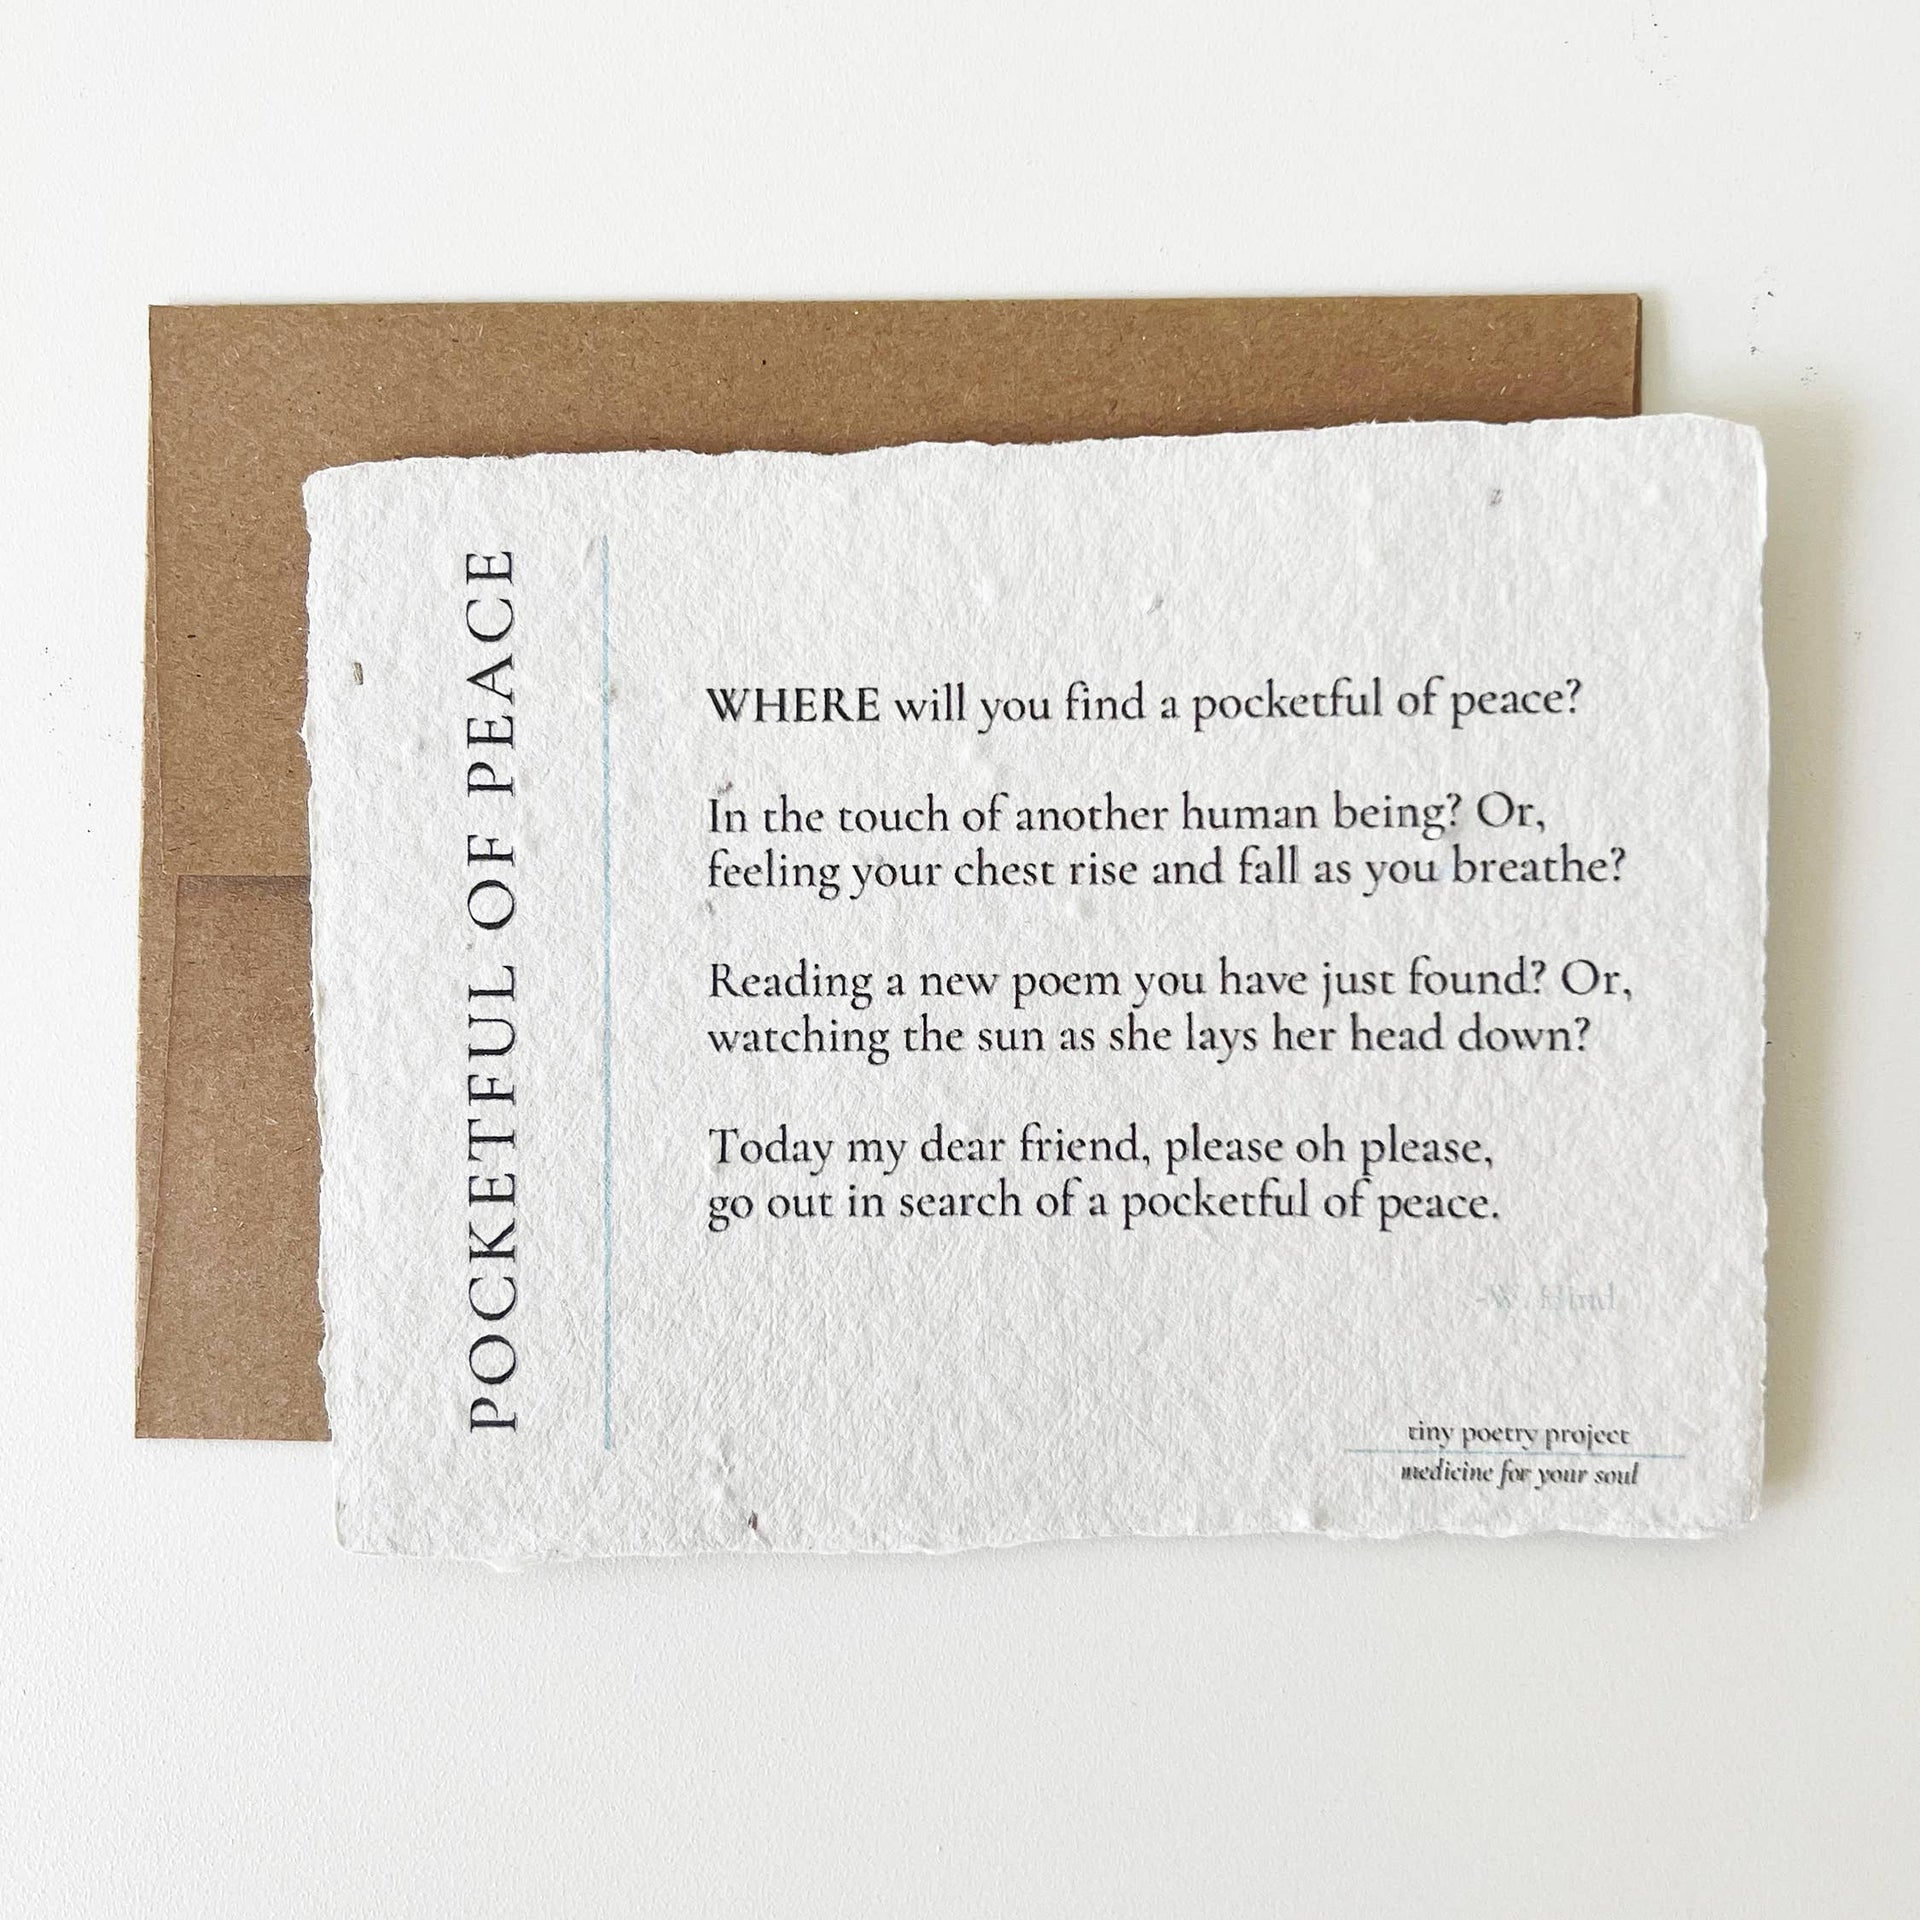 POCKETFUL OF PEACE
WHERE will you find a pocketful of peace?
In the touch of another human being? Or,
feeling your chest rise and fall as you breathe?
Reading a new poem you have just found? Or,
watching the sun as she lays her head down?
Today my dear friend, please oh please,
go out in search of a pocketful of peace.
-W. Hind
tiny poetry project
medicine for your soul